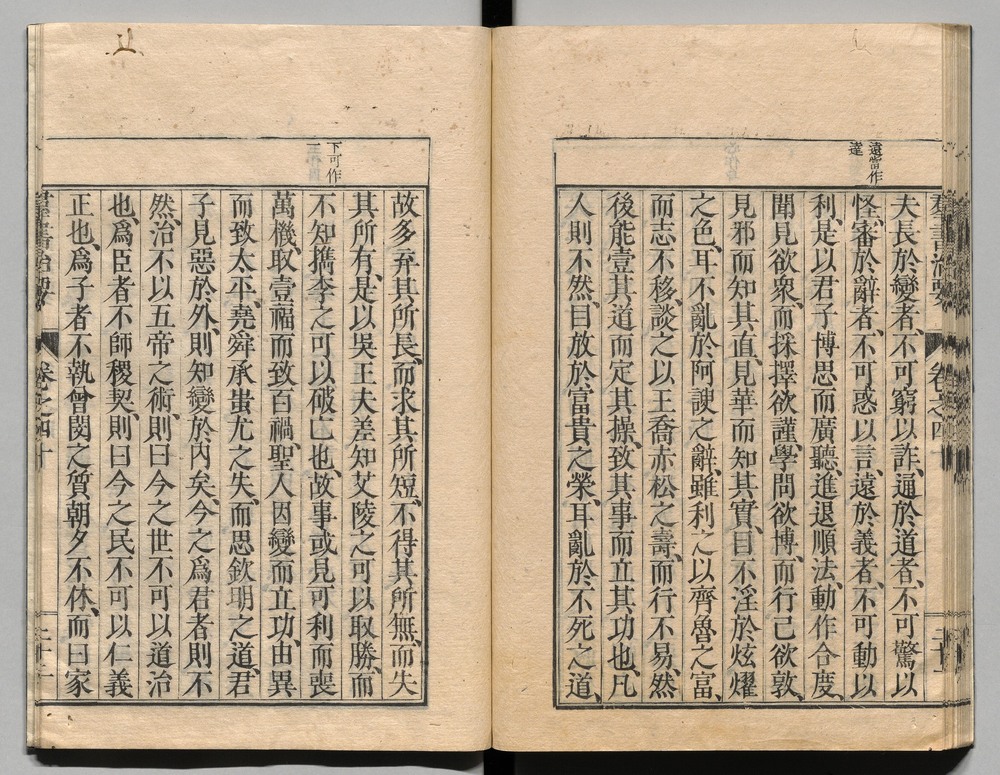 遠當作
達
夫長於變者、不可窮以詐、通於道者、不可驚以
怪、審於辭者、不可惑以言、遠於義者、不可動以
利、是以君子博思而廣聽、進退順法、動作合度、
聞見欲衆、而採擇欲謹、學問欲博、而行己欲敦、
見邪而知其直、見華而知其實、目不淫於炫燿
之色、耳不亂於阿諛之辭、雖利之以齊魯之富、
而志不移、談之以王喬赤松之壽、而行不易、然
後能壹其道而定其操、致其事而立其功也、凡
人則不然、目放於富貴之榮、耳亂於不死之道、
下可作
故多弃其所長、而求其所短、不得其所無、而失
其所有、是以吳王夫差知艾陵之可以取勝、而
不知檇李之可以破亡也、故事或見可利而喪
萬機、取壹福而致百禍、聖人因變而立功、由異
而致太平、堯舜承蚩尤之失、而思欽明之道、君
子見惡於外、則知變於內矣、今之爲君者則不
然、治不以五帝之術、則曰今之世不可以道治
也、爲臣者不師稷契、則曰今之民不可以仁義
正也、爲子者不執曾閔之質、朝夕不休、而曰家
群書治要
卷之四十
二十一